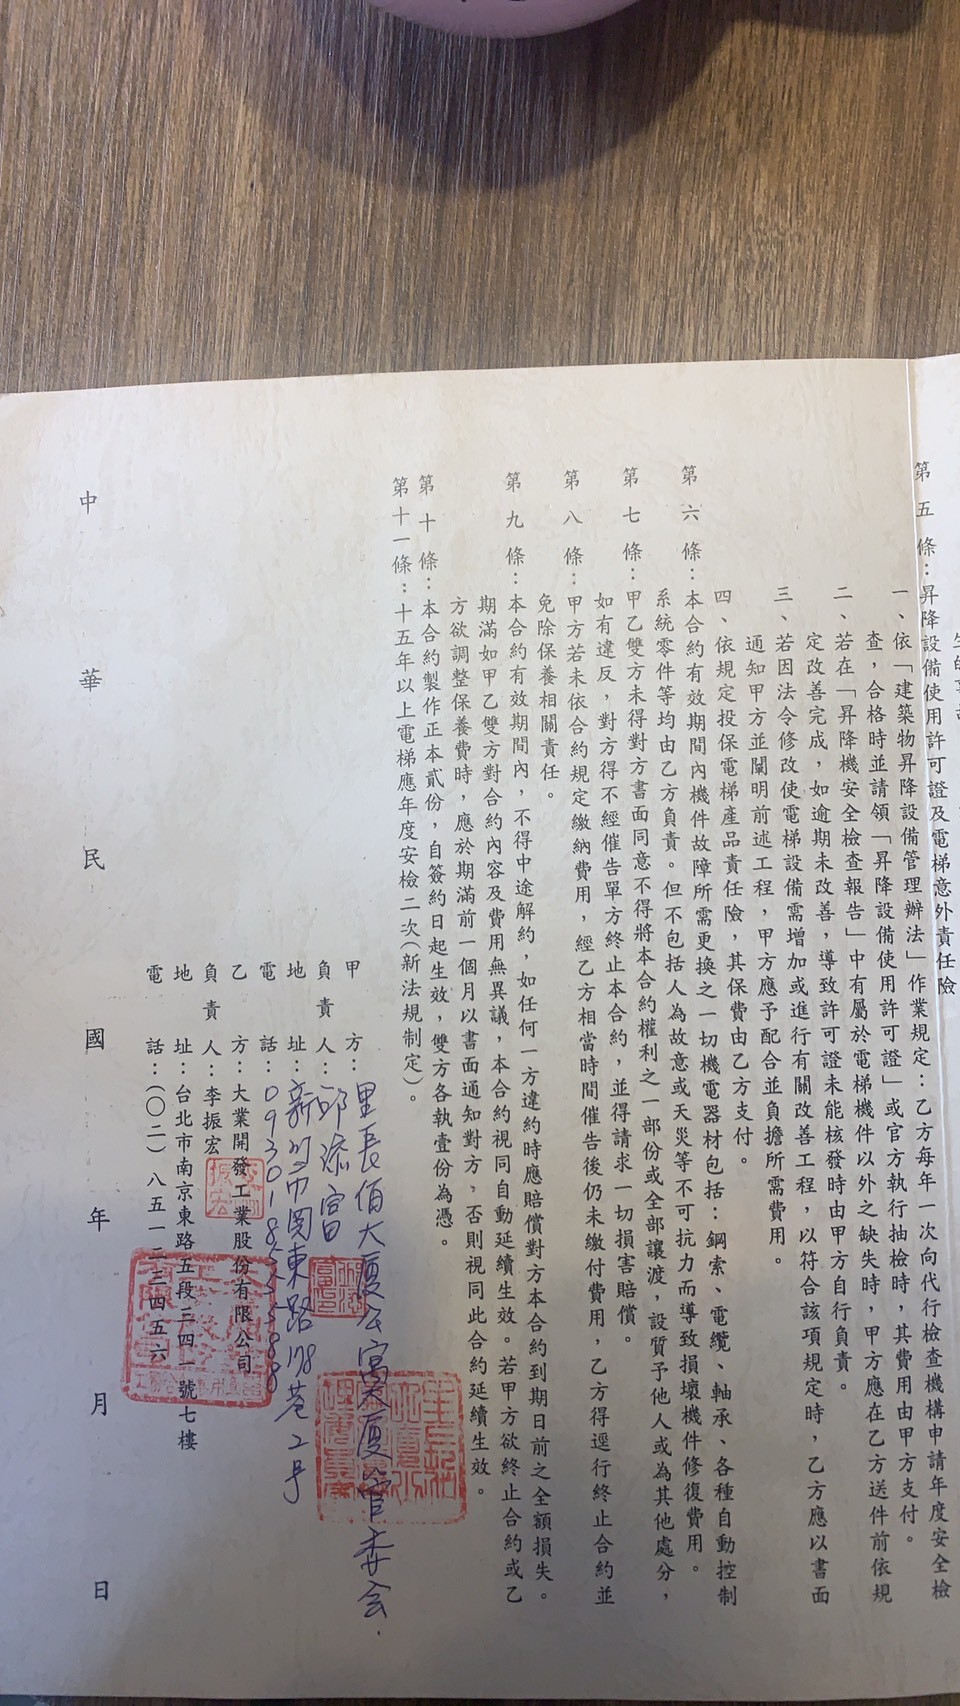 第五條：昇降設備使用許可證及電梯意外責任險
一、依「建築物昇降設備管理辦法」作業規定：乙方每年一次向代行檢查機構申請年度安全檢
查，合格時並請領「昇降設備使用許可證」或官方執行抽檢時，其費用由甲方支付。
二、若在「昇降機安全檢查報告」中有屬於電梯機件以外之缺失時，甲方應在乙方送件前依規
定改善完成，如逾期未改善，導致許可證未能核發時由甲方自行負責。
三、若因法令修改使電梯設備需增加或進行有關改善工程，以符合該項規定時，乙方應以書面
通知甲方並闡明前述工程，甲方應予配合並負擔所需費用。
四、依規定投保電梯產品責任險，其保費由乙方支付。
第六條：本合約有效期間內機件故障所需更換之一切機電器材包括：鋼索、電纜、軸承、各種自動控制
系統零件等均由乙方負責。但不包括人為故意或天災等不可抗力而導致損壞機件修復費用。
第七條：甲乙雙方未得對方書面同意不得將本合約權利之一部份或全部讓渡，設質予他人或為其他處分，
如有違反，對方得不經催告單方終止本合約，並得請求一切損害賠償。
第八條：甲方若未依合約規定繳納費用，經乙方相當時間催告後仍未繳付費用，乙方得逕行終止合約並
免除保養相關責任。
第九條：本合約有效期間內，不得中途解約，如任何一方違約時應賠償對方本合約到期日前之全額損失。
期滿如甲乙雙方對合約內容及費用無異議，本合約視同自動延續生效。若甲方欲終止合約或乙
方欲調整保養費時，應於期滿前一個月以書面通知對方，否則視同此合約延續生效。
第十條：本合約製作正本貳份，自簽約日起生效，雙方各執壹份為憑。
第十一條：十五年以上電梯應年度安檢二次（新法規制定）。
甲方：里長佰大廈公寓大廈管委会
負責人：邱添富
地址：新 市 東路 巷2号
電話：0930185588
乙方：大業開發工業股份有限公司
負責人：李振宏
地址：台北市南京東路五段三四一號七樓
電話：（〇二）八五一二三四五六
中華民國年月日